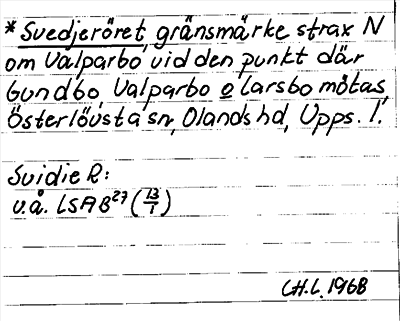 * Svedjeröret, gränsmärke strax N
om Valparbo, vid den punkt där
Gundbo, Valparbo o Larsbo mötas,
Österlövsta sn, Olands hd, Upps. l.
Svidie R:
u.å. LSA B27 (13/1)
CH.L. 1968